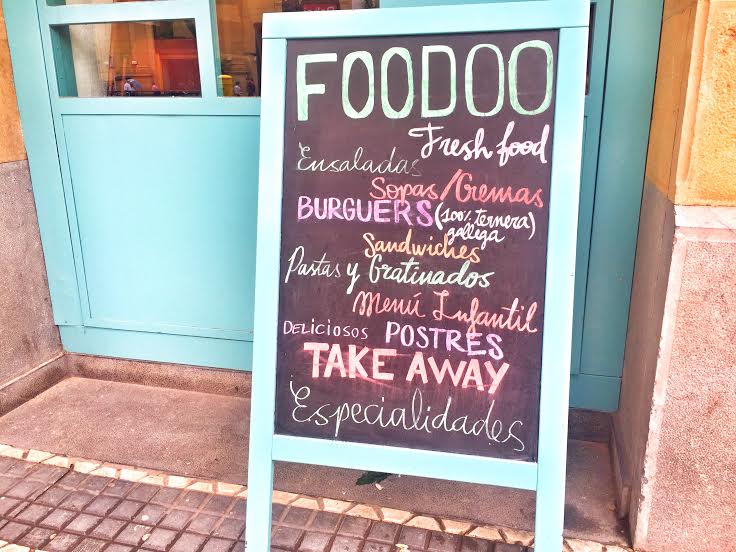 FOODOO
Fresh food
Ensaladas
Sopas/Cremas
BURGUERS (100% ternera gallega)
Sandwiches
Pastas y Gratinados
Menú Infantil
DELICIOSOS POSTRES
TAKE AWAY
Especialidades